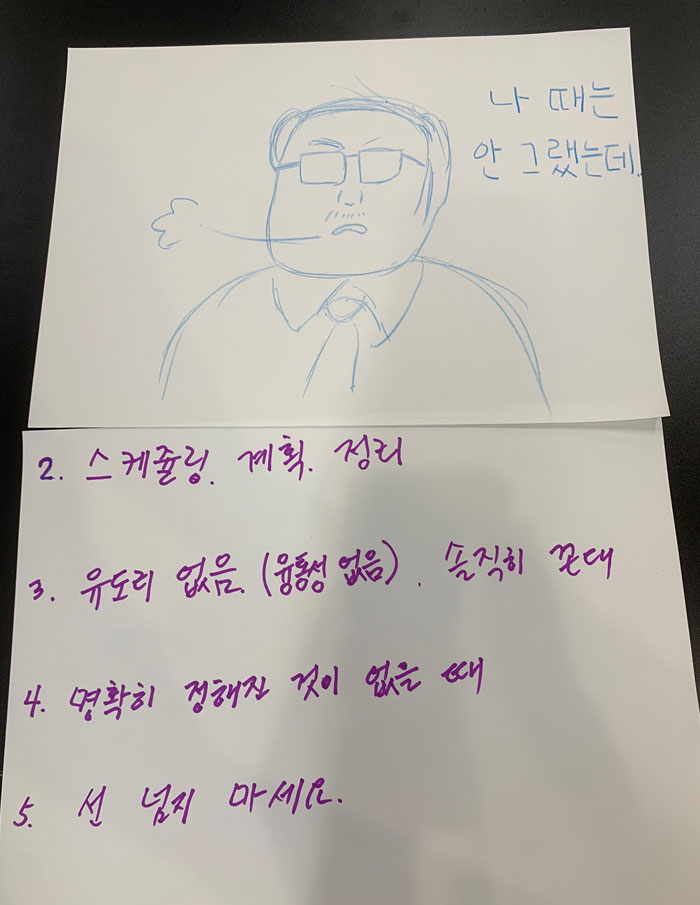 나 때는
안 그랬는데.
2. 스케쥴링, 계획. 정리
3. 유도리 없음. (융통성 없음). 솔직히 꼰대
4. 명확히 정해진 것이 없을 때
5. 선 넘지 마세요.